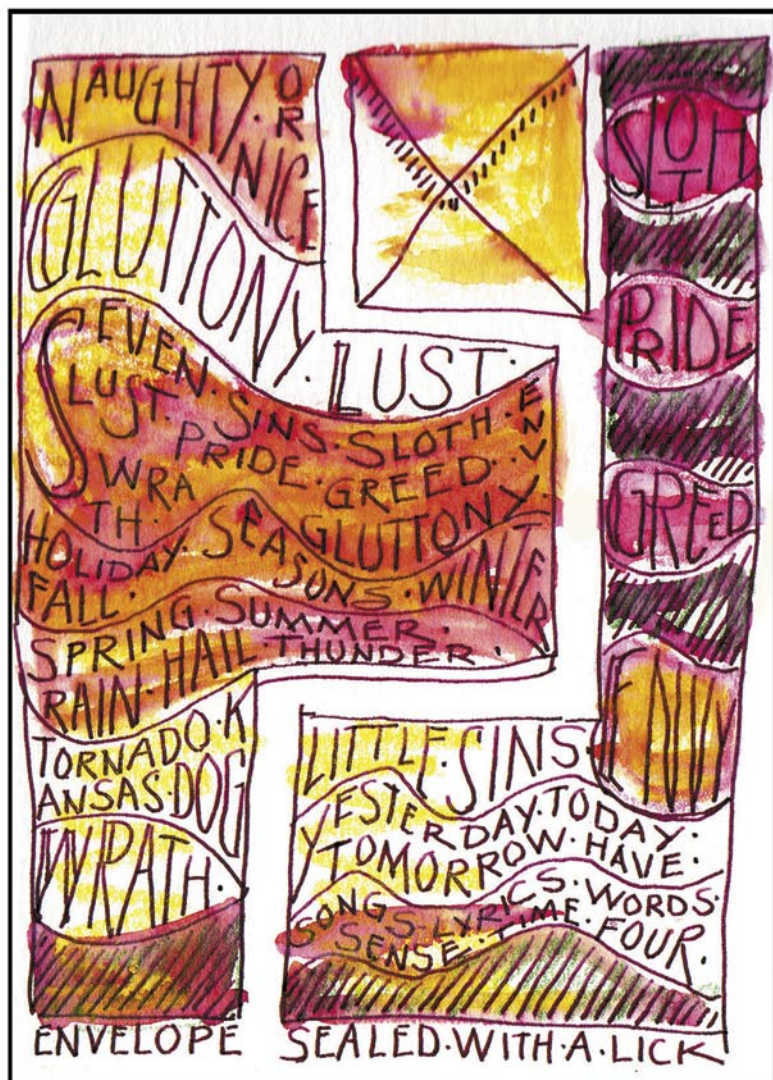 NAUGHTY·OR
NICE
GLUTTONY·LUST·
SEVEN·SINS·SLOTH·ENVY·
LUST·PRIDE·GREED·
WRA
TH·
GLUTTONY·
HOLIDAY·SEASONS·WINTER
FALL·
SPRING·SUMMER·
RAIN·HAIL·THUNDER·
TORNADO·K
ANSAS·DOG
WRATH·
ENVELOPE
SLOTH
PRIDE
GREED
ENVY
LITTLE·SINS
YESTERDAY·TODAY·
TOMORROW·HAVE·
SONGS·LYRICS·WORDS·
SENSE·TIME·FOUR·
SEALED·WITH·A·LICK